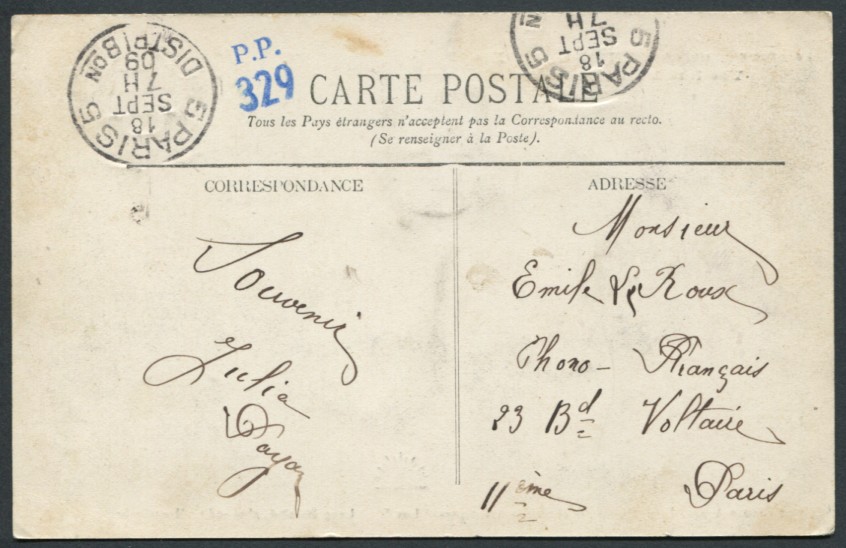 PARIS 5 DISTRIBON
18
SEPT
7H
09
P.P.
329
CARTE POSTALE
5 PARIS 5
18
SEPT
7H
Tous les Pays étrangers n'acceptent pas la Correspondance au recto.
(Se renseigner à la Poste).
CORRESPONDANCE
Souvenir
Julia
ADRESSE
Monsieur
Emile Le Roux
Phono-Français
23 Bd Voltaire
11ème Paris